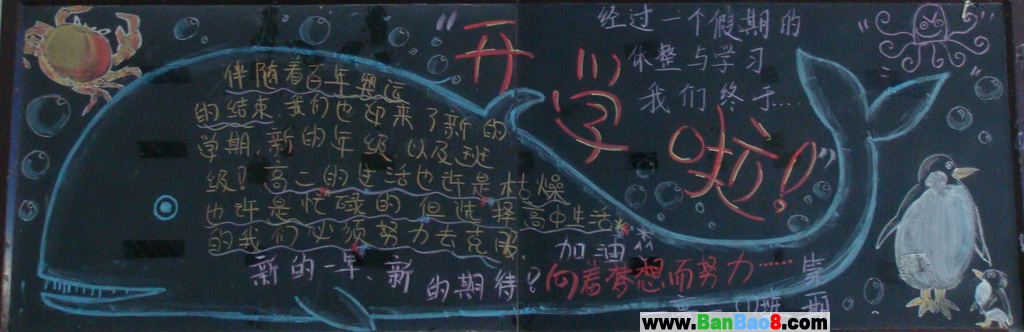 经过一个假期的
休整与学习
我们终于....
"开学啦!"
伴随着百年奥运
的结束,我们也迎来了新的
学期,新的年级,以及新班
级!高二的生活也许是枯燥
也许是忙碌的,但选择高中生活
的我们必须努力去克服
加油
新的一年、新的期待!向着梦想而努力……
www.BanBao8.com